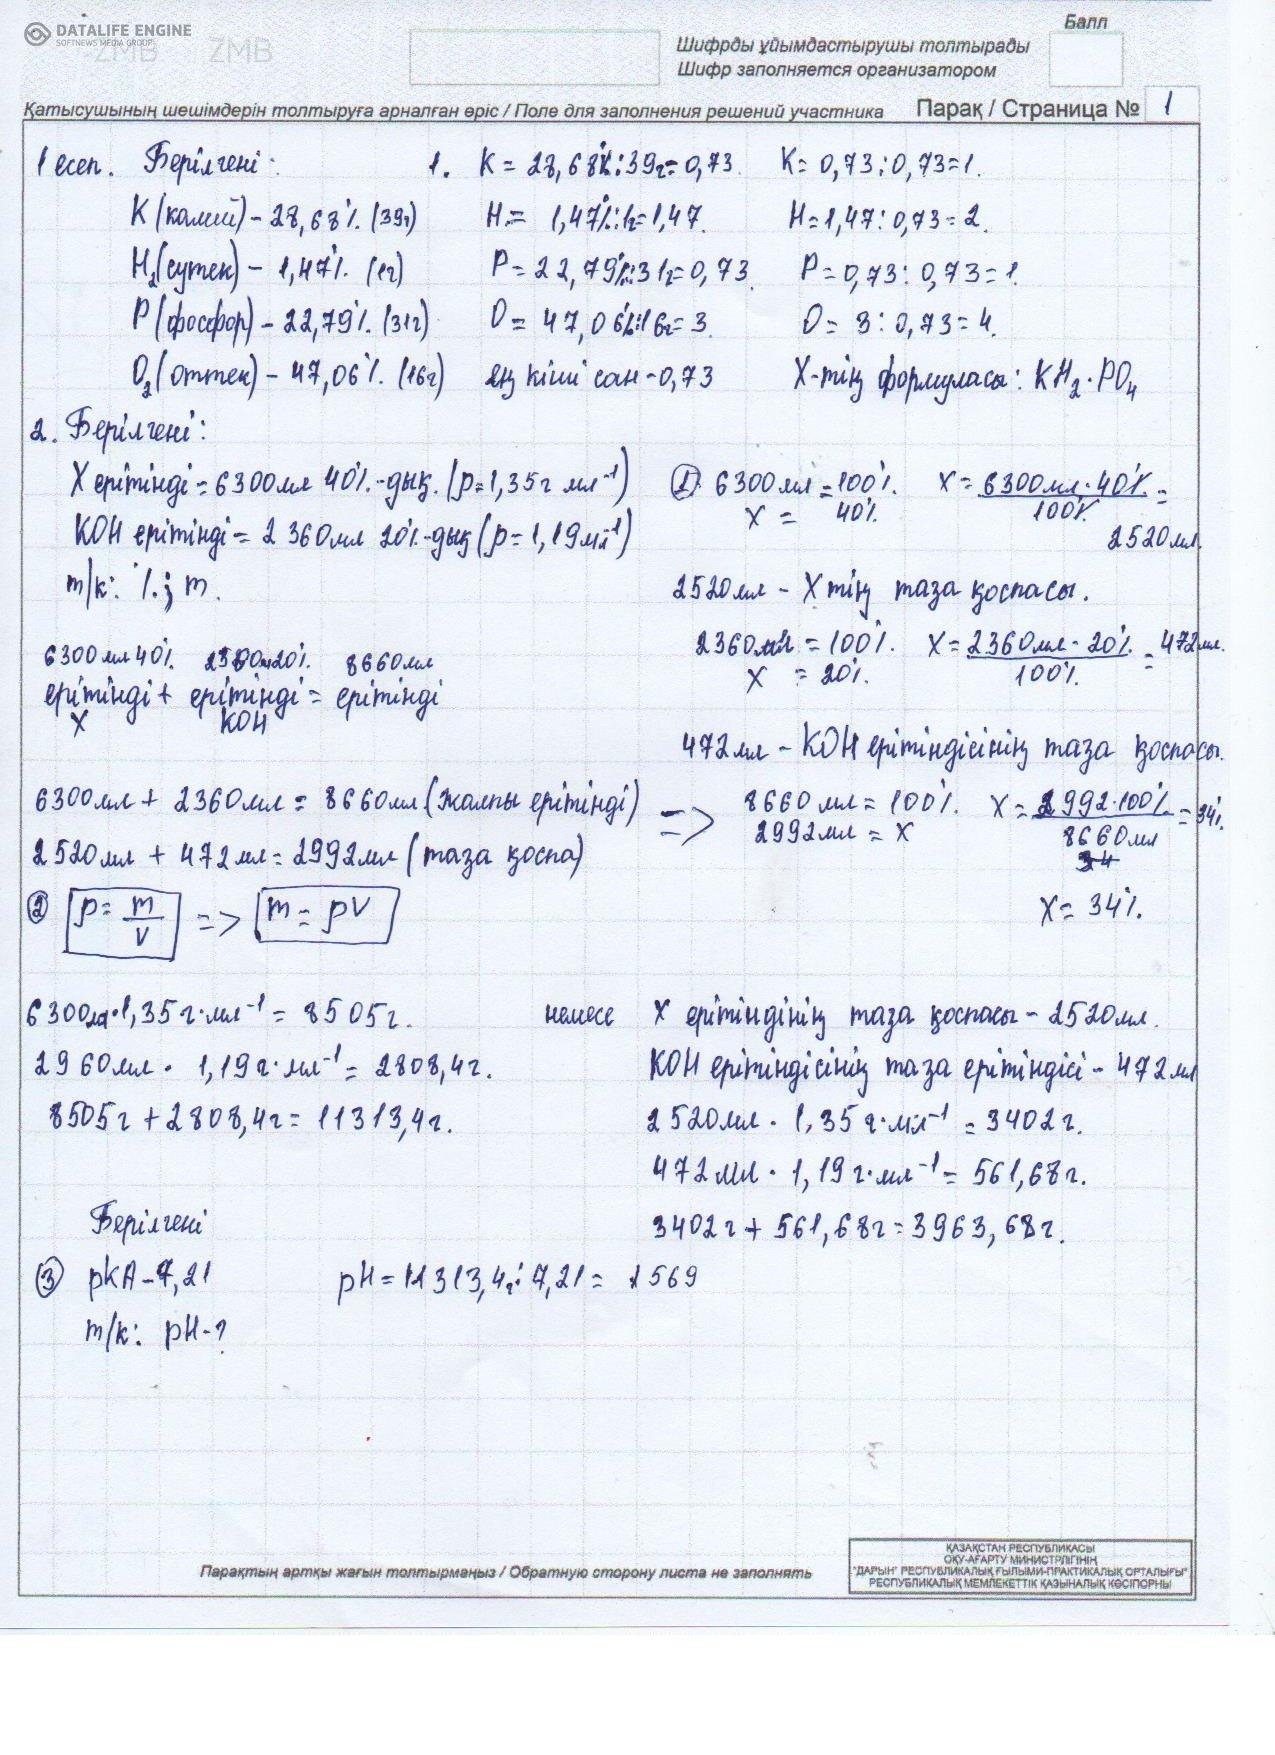 DATALIFE ENGINE
SOFTNEWS MEDIA GROUP
ZMB ZMB
Балл
Шифрды ұйымдастырушы толтырады
Шифр заполняется организатором
Қатысушының шешімдерін толтыруға арналған өріс / Поле для заполнения решений участника Парақ / Страница № 1
1 есеп. Берілгені: 1. K = 28,68%:39г=0,73. K=0,73:0,73=1.
K (калий) - 28,68%. (39г) H = 1,47%:1г=1,47. H=1,47:0,73=2.
H2(сутек) - 1,47%. (1г) P=22,79%:31г=0,73. P=0,73:0,73=1.
P (фосфор) - 22,79%. (31г) O = 47,06%:16г=3. O= 3:0,73=4.
O2(оттек) - 47,06%. (16г) ең кіші сан-0,73 X-тің формуласы: KH2·PO4
2. Берілгені:
X ерітінді=6300мл 40%-дық. (p=1,35г мл-1) 1 6300мл=100%. X=6300мл·40%/100%=
KOH ерітінді= 2360мл 20%-дық(p=1,19мл-1) X = 40%. 2520мл.
т/к: %.; m. 2520мл - X тің таза қоспасы.
6300мл40%. 2360мл20%. 8660мл 2360мл = 100%. X=2360мл·20%/100%.=472мл.
ерітінді+ ерітінді= ерітінді X = 20%.
X KOH
472мл - KOH ерітіндісінің таза қоспасы.
6300мл+2360мл=8660мл(жалпы ерітінді) => 8660мл=100%. X=2992·100%/8660мл=34%.
2520мл+472мл=2992мл(таза қоспа) 2992мл=X
34
2 p=m/v => m=pV X=34%.
6300мл·1,35г·мл-1=8505г. немесе X ерітіндінің таза қоспасы-2520мл.
2960мл· 1,19г·мл-1=2808,4г. KOH ерітіндісінің таза ерітіндісі-472мл
8505г+2808,4г=11313,4г. 2520мл· 1,35г·мл-1=3402г.
472мл· 1,19г·мл-1=561,68г.
Берілгені 3402г+561,68г=3963,68г.
3 pKA-7,21 pH=11313,4г:7,21= 1569
т/к: pH-?
Парақтың артқы жағын толтырмаңыз / Обратную сторону листа не заполнять
ҚАЗАҚСТАН РЕСПУБЛИКАСЫ
ОҚУ-АҒАРТУ МИНИСТРЛІГІНІҢ
"ДАРЫН" РЕСПУБЛИКАЛЫҚ ҒЫЛЫМИ-ПРАКТИКАЛЫҚ ОРТАЛЫҒЫ"
РЕСПУБЛИКАЛЫҚ МЕМЛЕКЕТТІК ҚАЗЫНАЛЫҚ КӘСІПОРНЫ